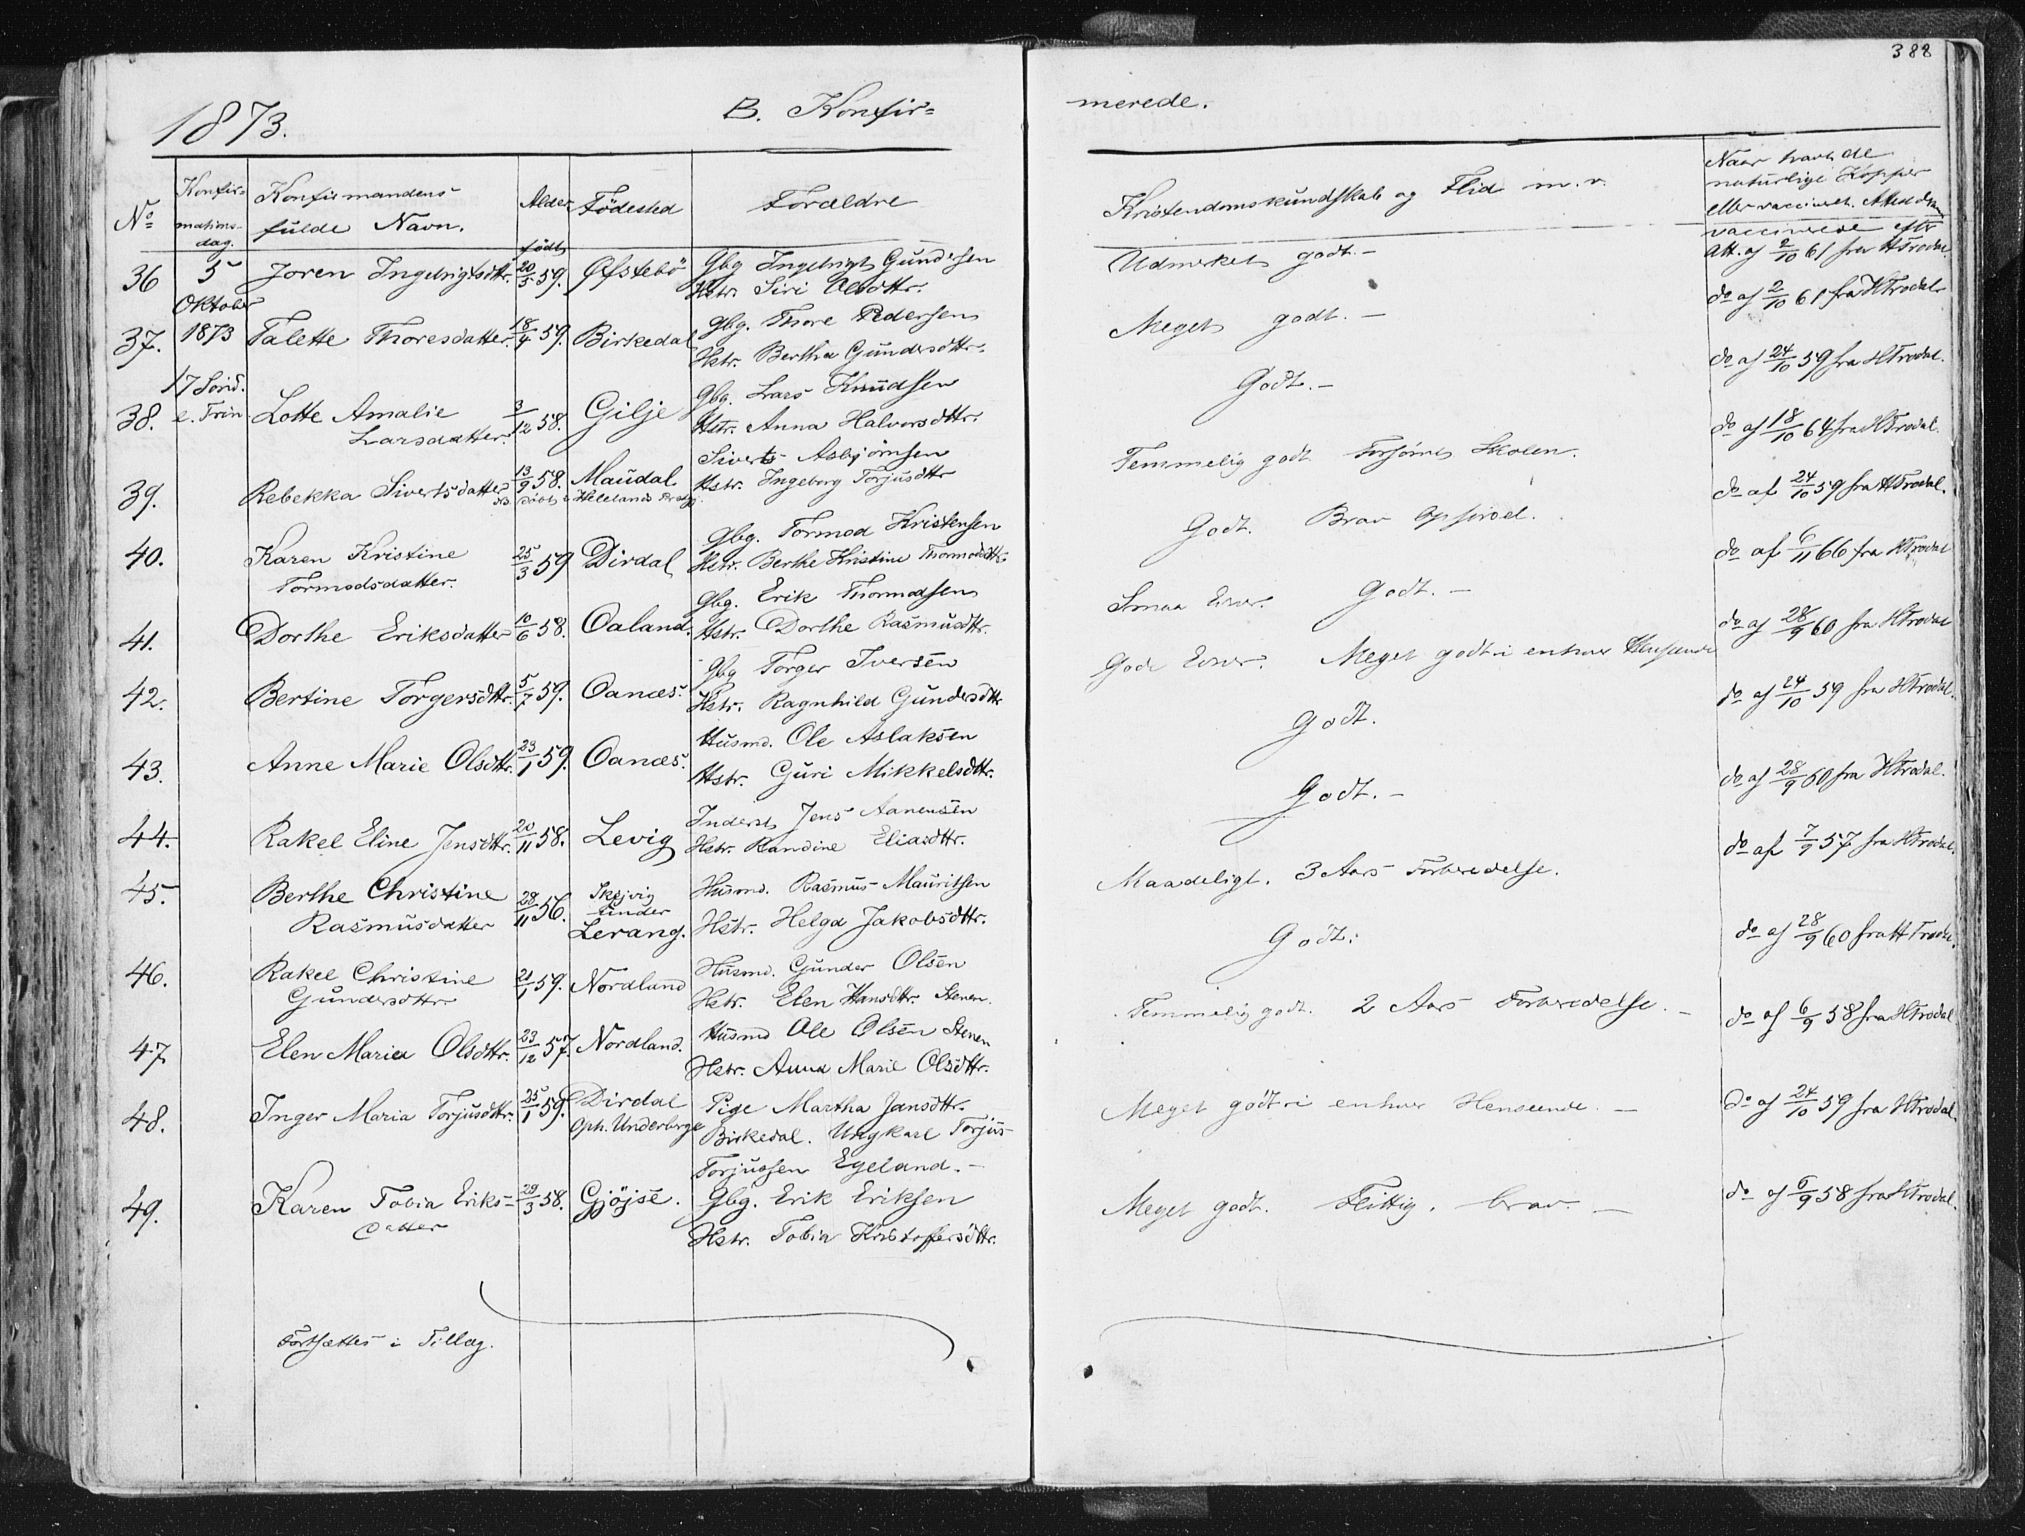 388
1873. B. Konfir=
merede.
No Konfir= mations- dag. Konfirmandens fulde Navn. Alder født Fødested Forældre
Kristendomskundskab og Flid m. v.
Naar havt de
naturlige Kopper
eller vaccineret. Med dem
vaccinerede efter
36 5 Joren Ingebrigtsdttr. 20/5 59. Øfstebö Gbg Ingebrigt Gundersen
Oktober Hstr. Siri Olsdttr.
Udmerket godt. -
Att. af 2/10 61 fra HTrodal
37. 1873 Talette Thoresdatter. 18/4 59. Birkedal Gbg. Thore Pedersen
Hstr. Bertha Gundersdttr.
Meget godt. -
do af 2/10 61 fra HTrodal
17 Sønd.
38. e. Trin Lotte Amalie 3/12 58. Gilje Gbg. Lars Knudsen
Larsdatter. Hstr. Anna Halvorsdttr.
Godt. -
do af 24/10 59 fra HTrodal.
39. Rebekka Sivertsdatter 13/9 58. Maudal Siverts Asbjørnsen
døbt i Hellelands Prstgj. Hstr. Ingeborg Torjusdttr
Temmelig godt Forsømt Skolen.
do af 18/10 64 fra HTrodal.
40. Karen Kristine 25/3 59 Dirdal Gbg. Tormod Kristensen
Tormodsdatter. Hstr. Berthe Kristine Thormodsdttr.
Godt. Brav Opførsel.
do af 24/10 59 fra HTrodal.
41. Dorthe Eriksdatter 10/6 58. Oaland. Gbg. Erik Thormodsen
Hstr. Dorthe Rasmusdttr.
Smaa Evner. Godt. -
do af 6/11 66 fra HTrodal
42. Bertine Torgersdttr. 5/7 59. Oanæs. Gbg Torger Iversen
Hstr. Ragnhild Gundersdttr
Gode Evner. Meget godt i enhver Henseende
do af 28/9 60 fra HTrodal
43. Anne Marie Olsdttr. 23/1 59. Oanæs. Husmd. Ole Aslaksen
Hstr. Guri Mikkelsdttr.
Godt.
do af 24/10 59 fra HTrodal.
44. Rakel Eline Jensdttr. 20/11 58. Levig Inderst Jens Aanensen
Hstr. Randine Eliasdttr.
Godt. -
do af 28/9 60 fra HTrodal.
45. Berthe Christine 28/11 56. Skejvig under Lerang. Husmd. Rasmus Mauritsen
Rasmusdatter Hstr. Helga Jakobsdttr.
Maadeligt. 3 Aars Forberedelse.
do af 7/9 57 fra HTrodal.
46. Rakel Christine 21/1 59. Nordland Husmd. Gunder Olsen
Gundersdttr. Hstr. Elen Hansdttr. Stenen.
Godt.
do af 28/9 60 fra HTrodal.
47. Elen Maria Olsdttr. 23/12 57. Nordland. Husmd Ole Olsen Stenen
Hstr. Anna Marie Olsdttr.
Temmelig godt. 2 Aars Forberedelse. -
do af 6/9 58 fra HTrodal
48. Inger Maria Torjusdttr. 25/1 59. Dirdal Pige Martha Jansdttr.
Oph. Underberge Birkedal. Ungkarl Torjus
Torjussen Egeland. -
Meget godt i enhver Henseende. -
do af 24/10 59 fra HTrodal.
49. Karen Tobia Eriks- 29/3 58. Gjöjse. Gbg. Erik Eriksen
datter Hstr. Tobia Kristoffersdttr.
Meget godt. Flittig. brav. -
do af 6/9 58 fra HTrodal.
Fortsættes i Tillæg.